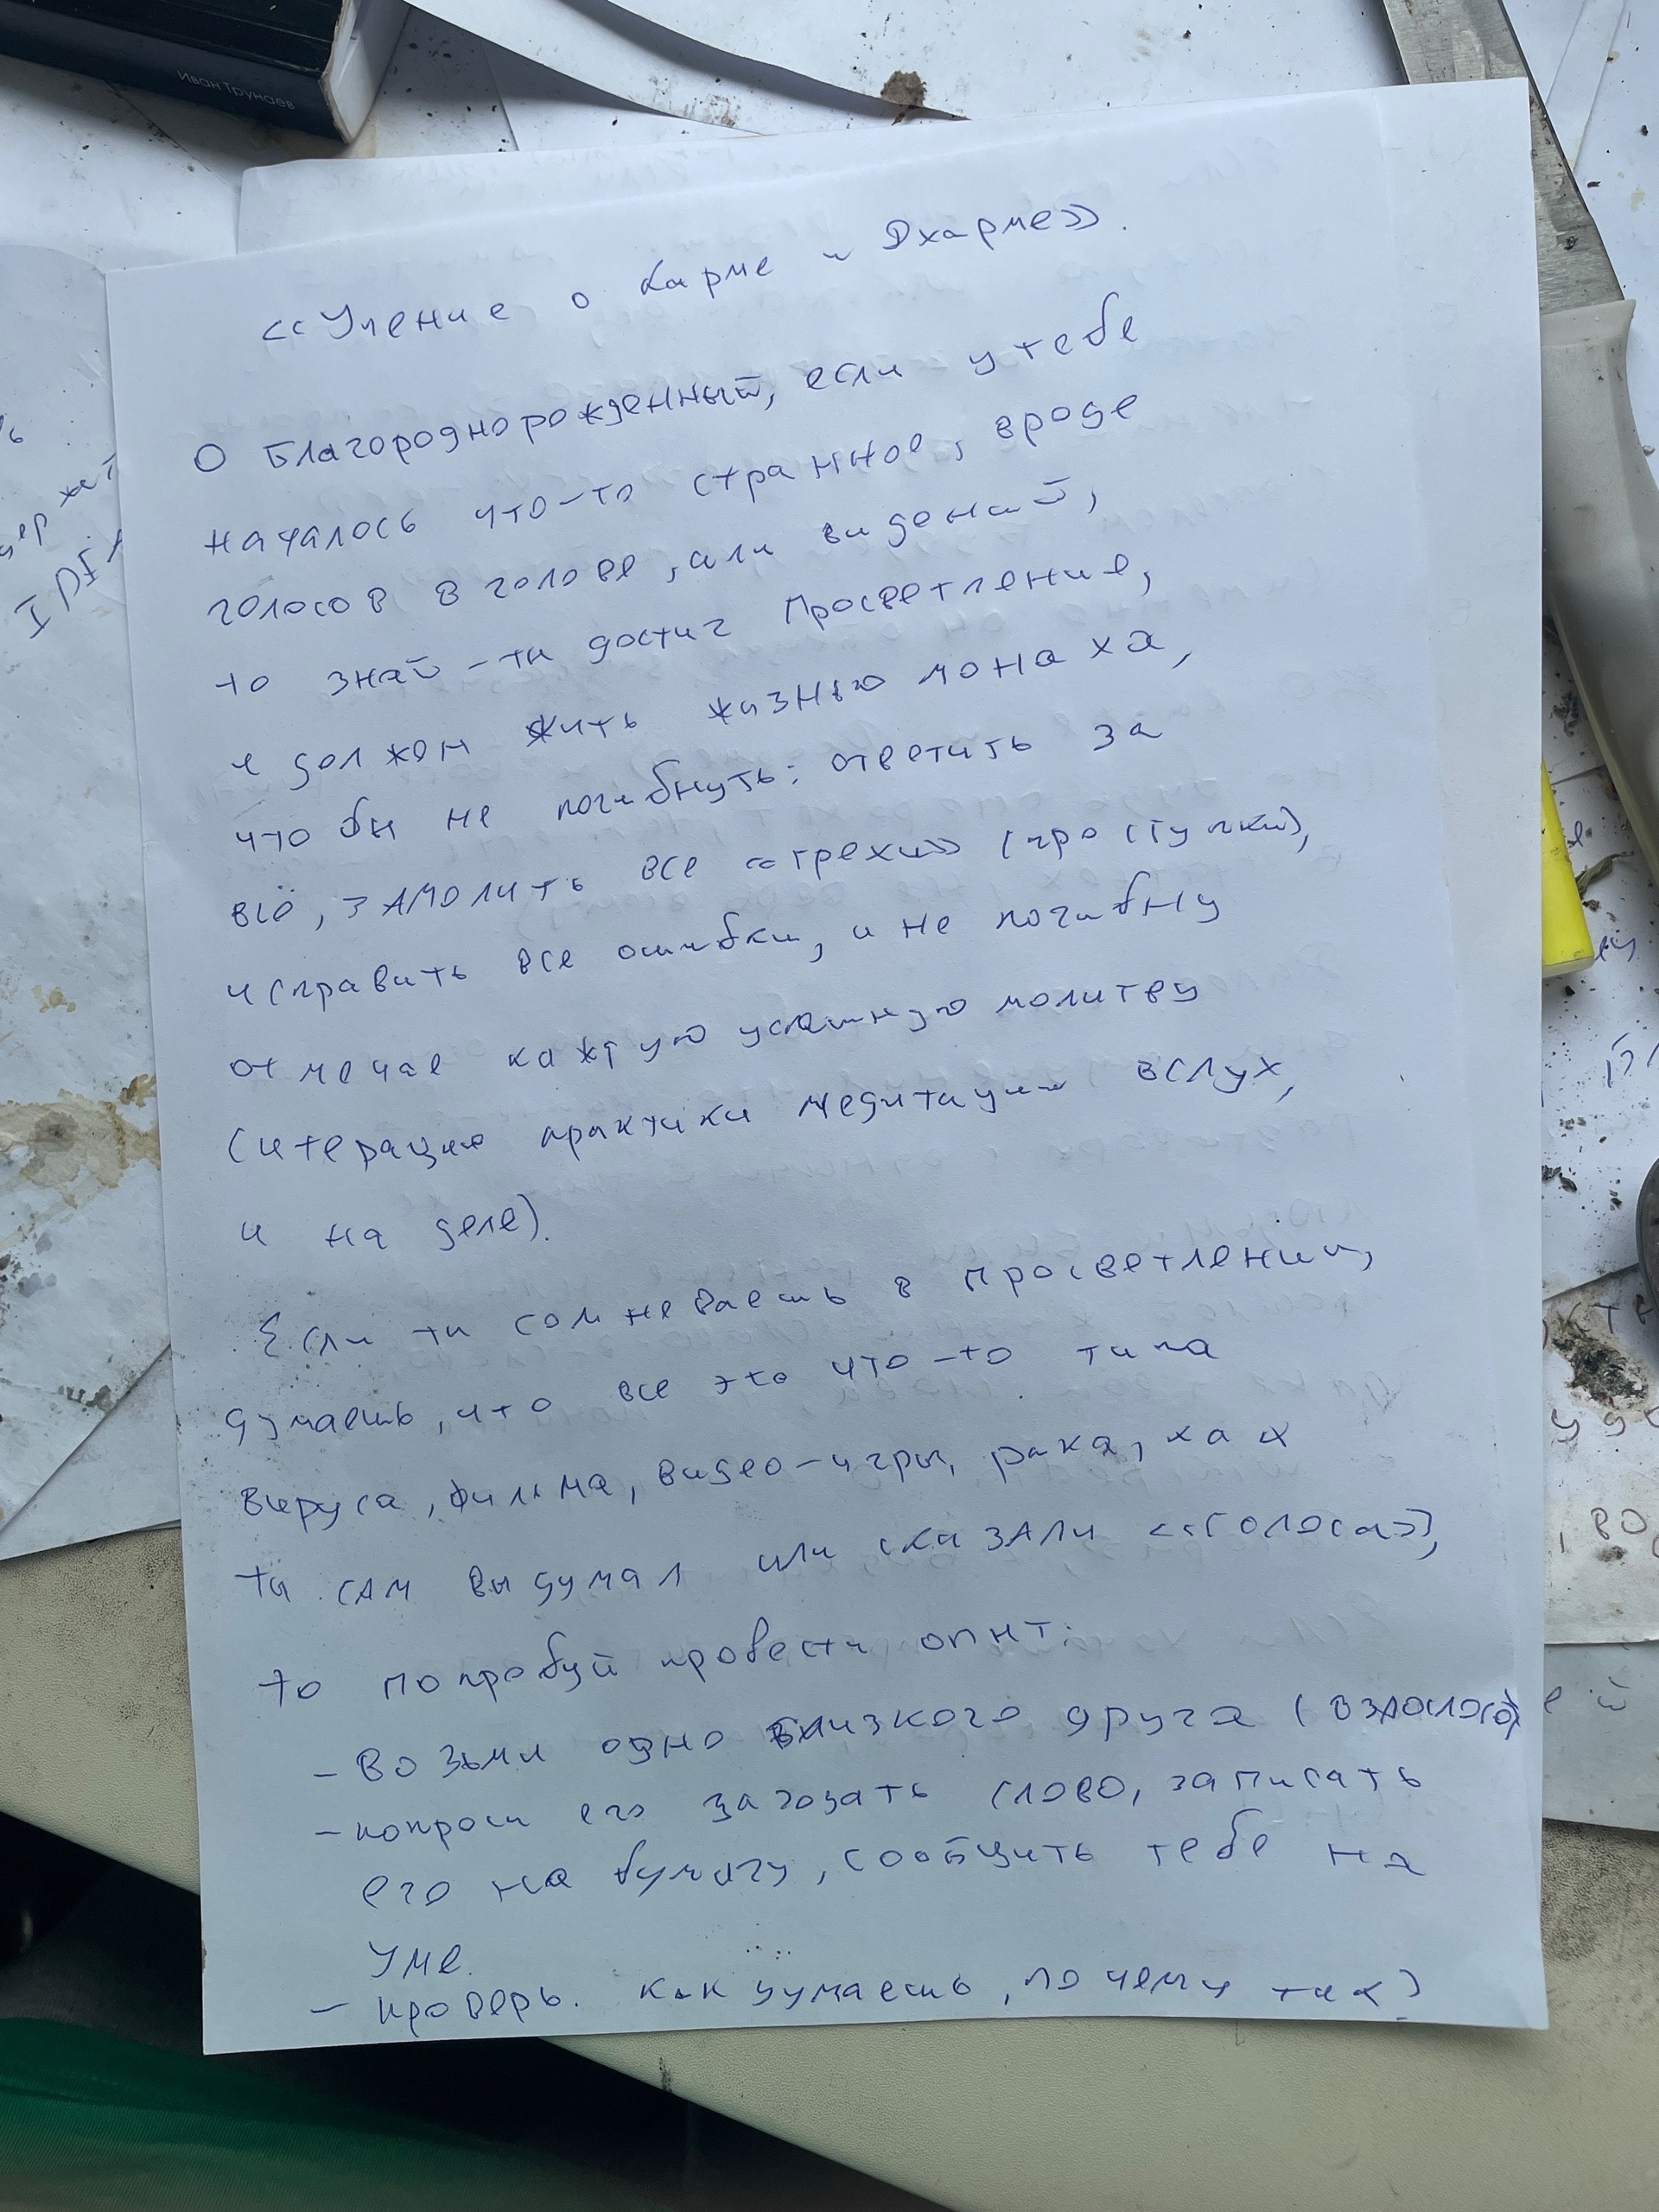 Иван Трунаев
<<Учение о Карме и Дхарме>>.
О Благороднорожденный, если у тебе
началось что-то странное, вроде
голосов в голове, или видений,
то знай - ты достиг Просветление,
и должен жить жизнью монаха,
что бы не погибнуть: ответить за
всё, ЗАМОЛИТЬ все <<грехи>> (проступки),
исправить все ошибки, и не погибну
отмечае каждую услышную молитву
(итерацию практики медитации вслух,
и на деле).
Если ты сомневаешь в просветлении,
думаешь, что все это что-то типа
вируса, фильма, видео-игры, рака, ха х
ты САМ выдумал или сказали <<голоса>>,
то попробуй провести опыт:
- Возьми одно близкого друга
- попроси его загодать слово, записать
его на бумагу, сообщить тебе на
уме.
- проверь. Как думаешь, почему так?